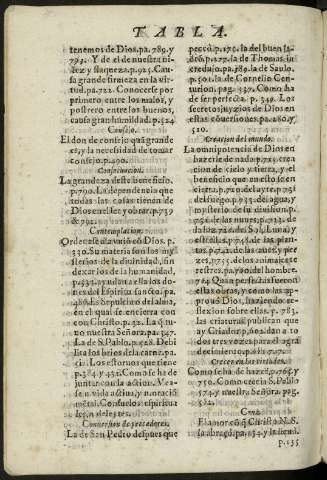 TABLA.
tenemos de Dios. pa. 789. y
793. Y de el de nuestra ni-
ñez y flaqueza. p. 925. Cau-
sa grande firmeza en la vir-
tud. pa. 722. Conocerse por
primero entre los malos, y
postrero entre los buenos,
causa gran humildad. p. 524
Consejo.
El don de consejo quã grande
es, y la necessidad de tomar
consejo. p. 490.
Conservacion.
La grandeza deste beneficio.
p. 790. La dependencia que
todas las cosas tienen de
Dios en el ser y obrar. p. 739
& 792.
Contemplacion.
Orden se ha
Dios. p.
330. Su materia son los my-
sterios de la divinidad, sin
dexar los de la humanidad,
p. 532. y ayudan a ella los do-
nes del Espiritu sancto. pa.
486. Es sepulchro del alma
en el qual se encierra con
con Christo. p. 32. La q̃ tu-
vo nuestra Señora. pa. 347.
La de S. Pablo. p. 528. Debi
lita los brios de la carne. pa.
Los estorvos que tiene
p. 384 y 431. Como se ha de
juntar con la action. Vea-
se en vida activa, y en oracion
mẽtal. Consuelos espiritua
les, en deleytes.
Conversion de peccadores.
La de San Pedro despues que
peccò. p. 176. la del buen la-
drõ. p. 227. la de Thomas in-
credulo. pa. 389. la de Saulo.
p. 501. la de Cornelio Cen-
turion. pag. 537. Como ha
de ser perfecta. p. 349. Los
secretos juyzios de Dios en
estas conversiones. pa. 280. y
510.
Creacion del mundo.
La omnipotencia de Dios en
hazerle de nada. p. 723. crea-
cion de cielo y tierra, y el
beneficio que nos hizo en
ello. p. 729. del ayre. p. 751
del fuego. p. 733. del agua, y
mysterio de su division. p.
735. de las nuves. p. 732. de
la luz. p. 726. del Sol, Luna, y
estrellas. p. 748. de las plan-
tas. p. 742. de las aves, y pe-
zes. p. 755. de los animales te-
restres. pa. 760. del hombre.
764. Quan perfectas fueron
ellas obras, y como las ap-
provò Dios, haziendo re-
flexion sobre ellas. p. 783.
las criaturas publican que
ay Criador. p. 300. dan a to-
dos vozes para el el agra-
decimiento. pa. 816.
Crecer en las virtudes.
Como se ha de hazer. p. 765. y
750. Como crecia S. Pablo
574. y nuestra Señora. pag.
582.
Cruz.
El amor con q̃ Christo N. S.
la abraçò. pa. 154. y la llevò
p. 155